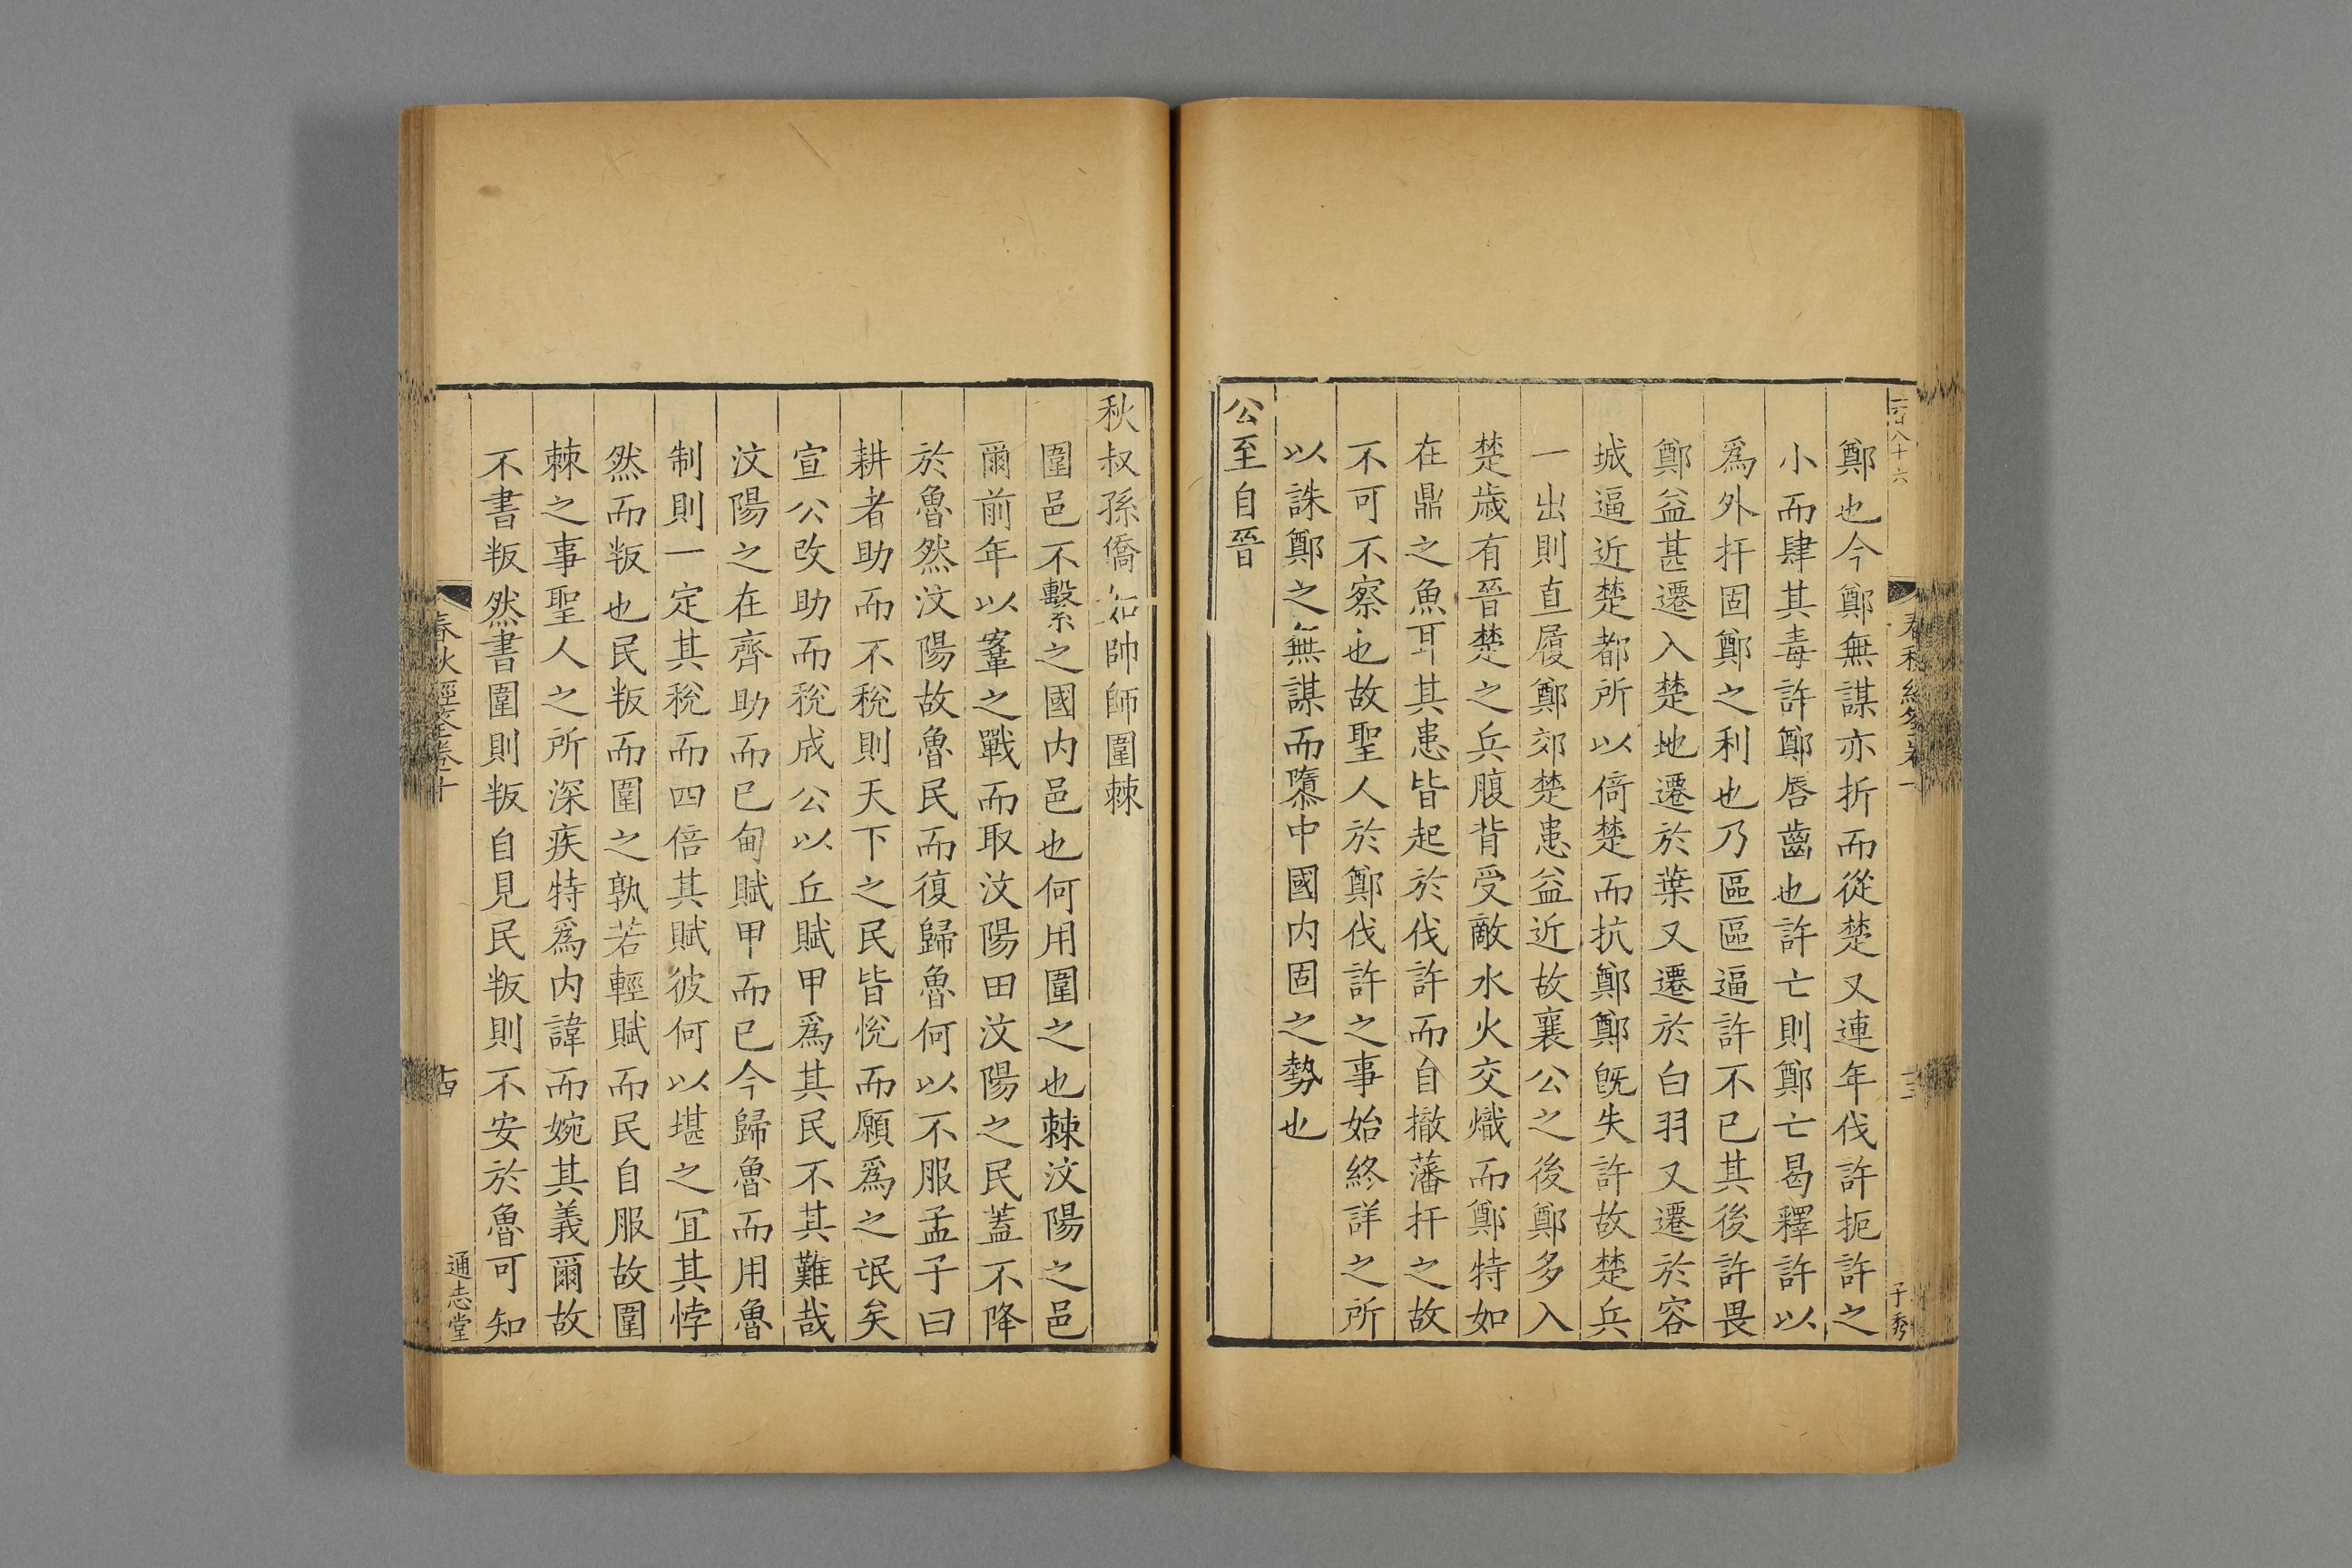 鄭也今鄭無謀亦折而從楚又連年伐許扼許之
小而肆其毒許鄭唇齒也許亡則鄭亡曷釋許以
爲外扞固鄭之利也乃區區逼許不已其後許畏
鄭益甚遷入楚地遷於葉又遷於白羽又遷於容
城逼近楚都所以倚楚而抗鄭鄭旣失許故楚兵
一出則直履鄭郊楚患益近故襄公之後鄭多入
楚歲有晉楚之兵腹背受敵水火交熾而鄭特如
在鼎之魚耳其患皆起於伐許而自撤藩扞之故
不可不察也故聖人於鄭伐許之事始終詳之所
以誅鄭之無謀而隳中國内固之勢也
公至自晉
秋叔孫僑如帥師圍棘
圍邑不繫之國内邑也何用圍之也棘汶陽之邑
爾前年以鞌之戰而取汶陽田汶陽之民蓋不降
於魯然汶陽故魯民而復歸魯何以不服孟子曰
耕者助而不稅則天下之民皆悅而願爲之氓矣
宣公改助而稅成公以丘賦甲爲其民不其難哉
汶陽之在齊助而已甸賦甲而已今歸魯而用魯
制則一定其稅而四倍其賦彼何以堪之冝其悖
然而叛也民叛而圍之孰若輕賦而民自服故圍
棘之事聖人之所深疾特爲内諱而婉其義爾故
不書叛然書圍則叛自見民叛則不安於魯可知
春秋經筌卷十
十四
通志堂